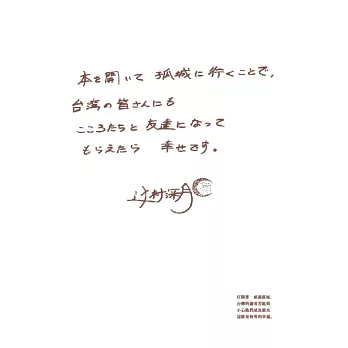 本を開いて 孤城に行くことで、
台湾の皆さんにも
こころたちと友達になって
もらえたら 幸せです。
辻村深月
打開書 前進孤城，
台灣的讀者若能與
小心她們成為朋友